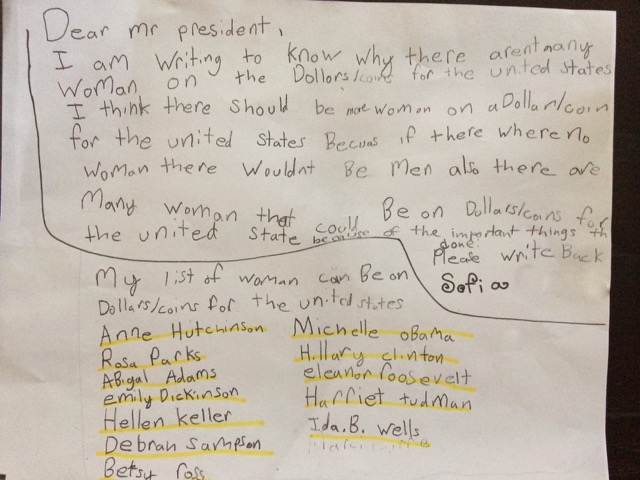 Dear mr president,
I am writing to know why there arent many
woman on the Dollors/coins for the united states
I think there should be more women on a Dollar/coin
for the united states Becuas if there where no
woman there wouldnt Be Men also there are
Many woman that could Be on Dollars/coins for
the united state because of the important things th
done.
Please write Back
Sofia
My list of woman can Be on
Dollars/coins for the united states
Anne Hutchinson
Rosa Parks
Abigal Adams
emily Dickinson
Hellen keller
Debrah sampson
Betsy ross
Michelle obama
Hillary clinton
eleanor roosevelt
Harriet tudman
Ida.B. wells